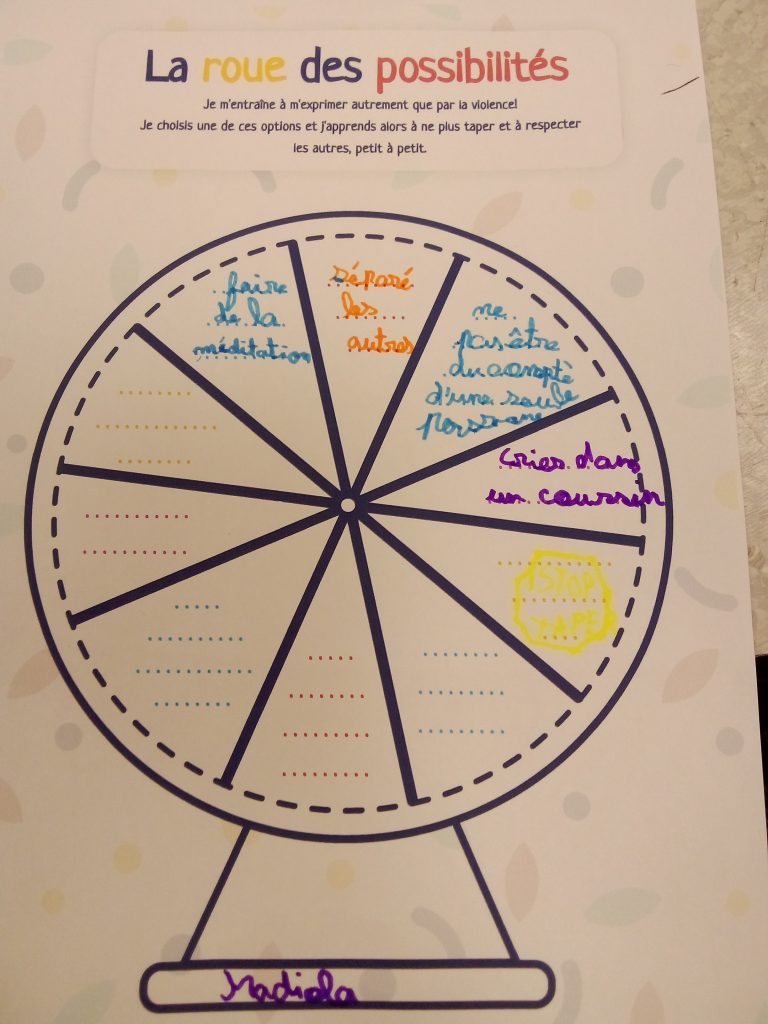 La roue des possibilités
Je m'entraîne à m'exprimer autrement que par la violence!
Je choisis une de ces options et j'apprends alors à ne plus taper et à respecter
les autres, petit à petit.
faire
de la
méditation
réparé
les
autres
ne
pas être
du compte
d'une seule
personne
cries dans
un coussin
STOP
TAPER
Madiola